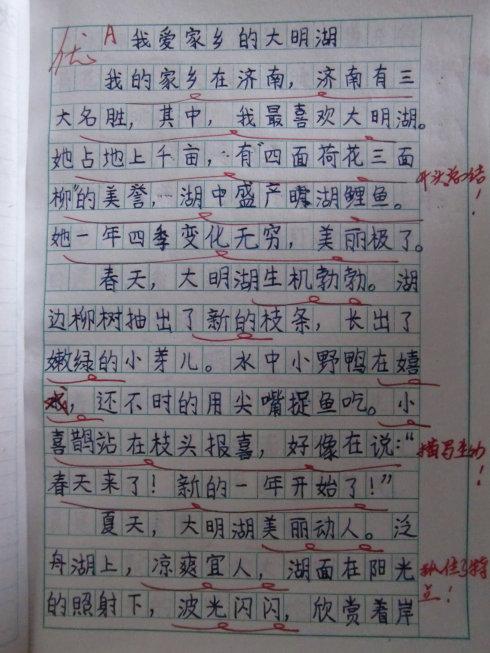 优 A 我爱家乡的大明湖
我的家乡在济南，济南有三
大名胜，其中，我最喜欢大明湖。
她占地上千亩，有“四面荷花三面
柳”的美誉，湖中盛产明湖鲤鱼。
开头总结！
她一年四季变化无穷，美丽极了。
春天，大明湖生机勃勃。湖
边柳树抽出了新的枝条，长出了
嫩绿的小芽儿。水中小野鸭在嬉
戏，还不时的用尖嘴捉鱼吃。小
喜鹊站在枝头报喜，好像在说：“
描写生动！
春天来了！新的一年开始了！”
夏天，大明湖美丽动人。泛
舟湖上，凉爽宜人，湖面在阳光
的照射下，波光闪闪，欣赏着岸